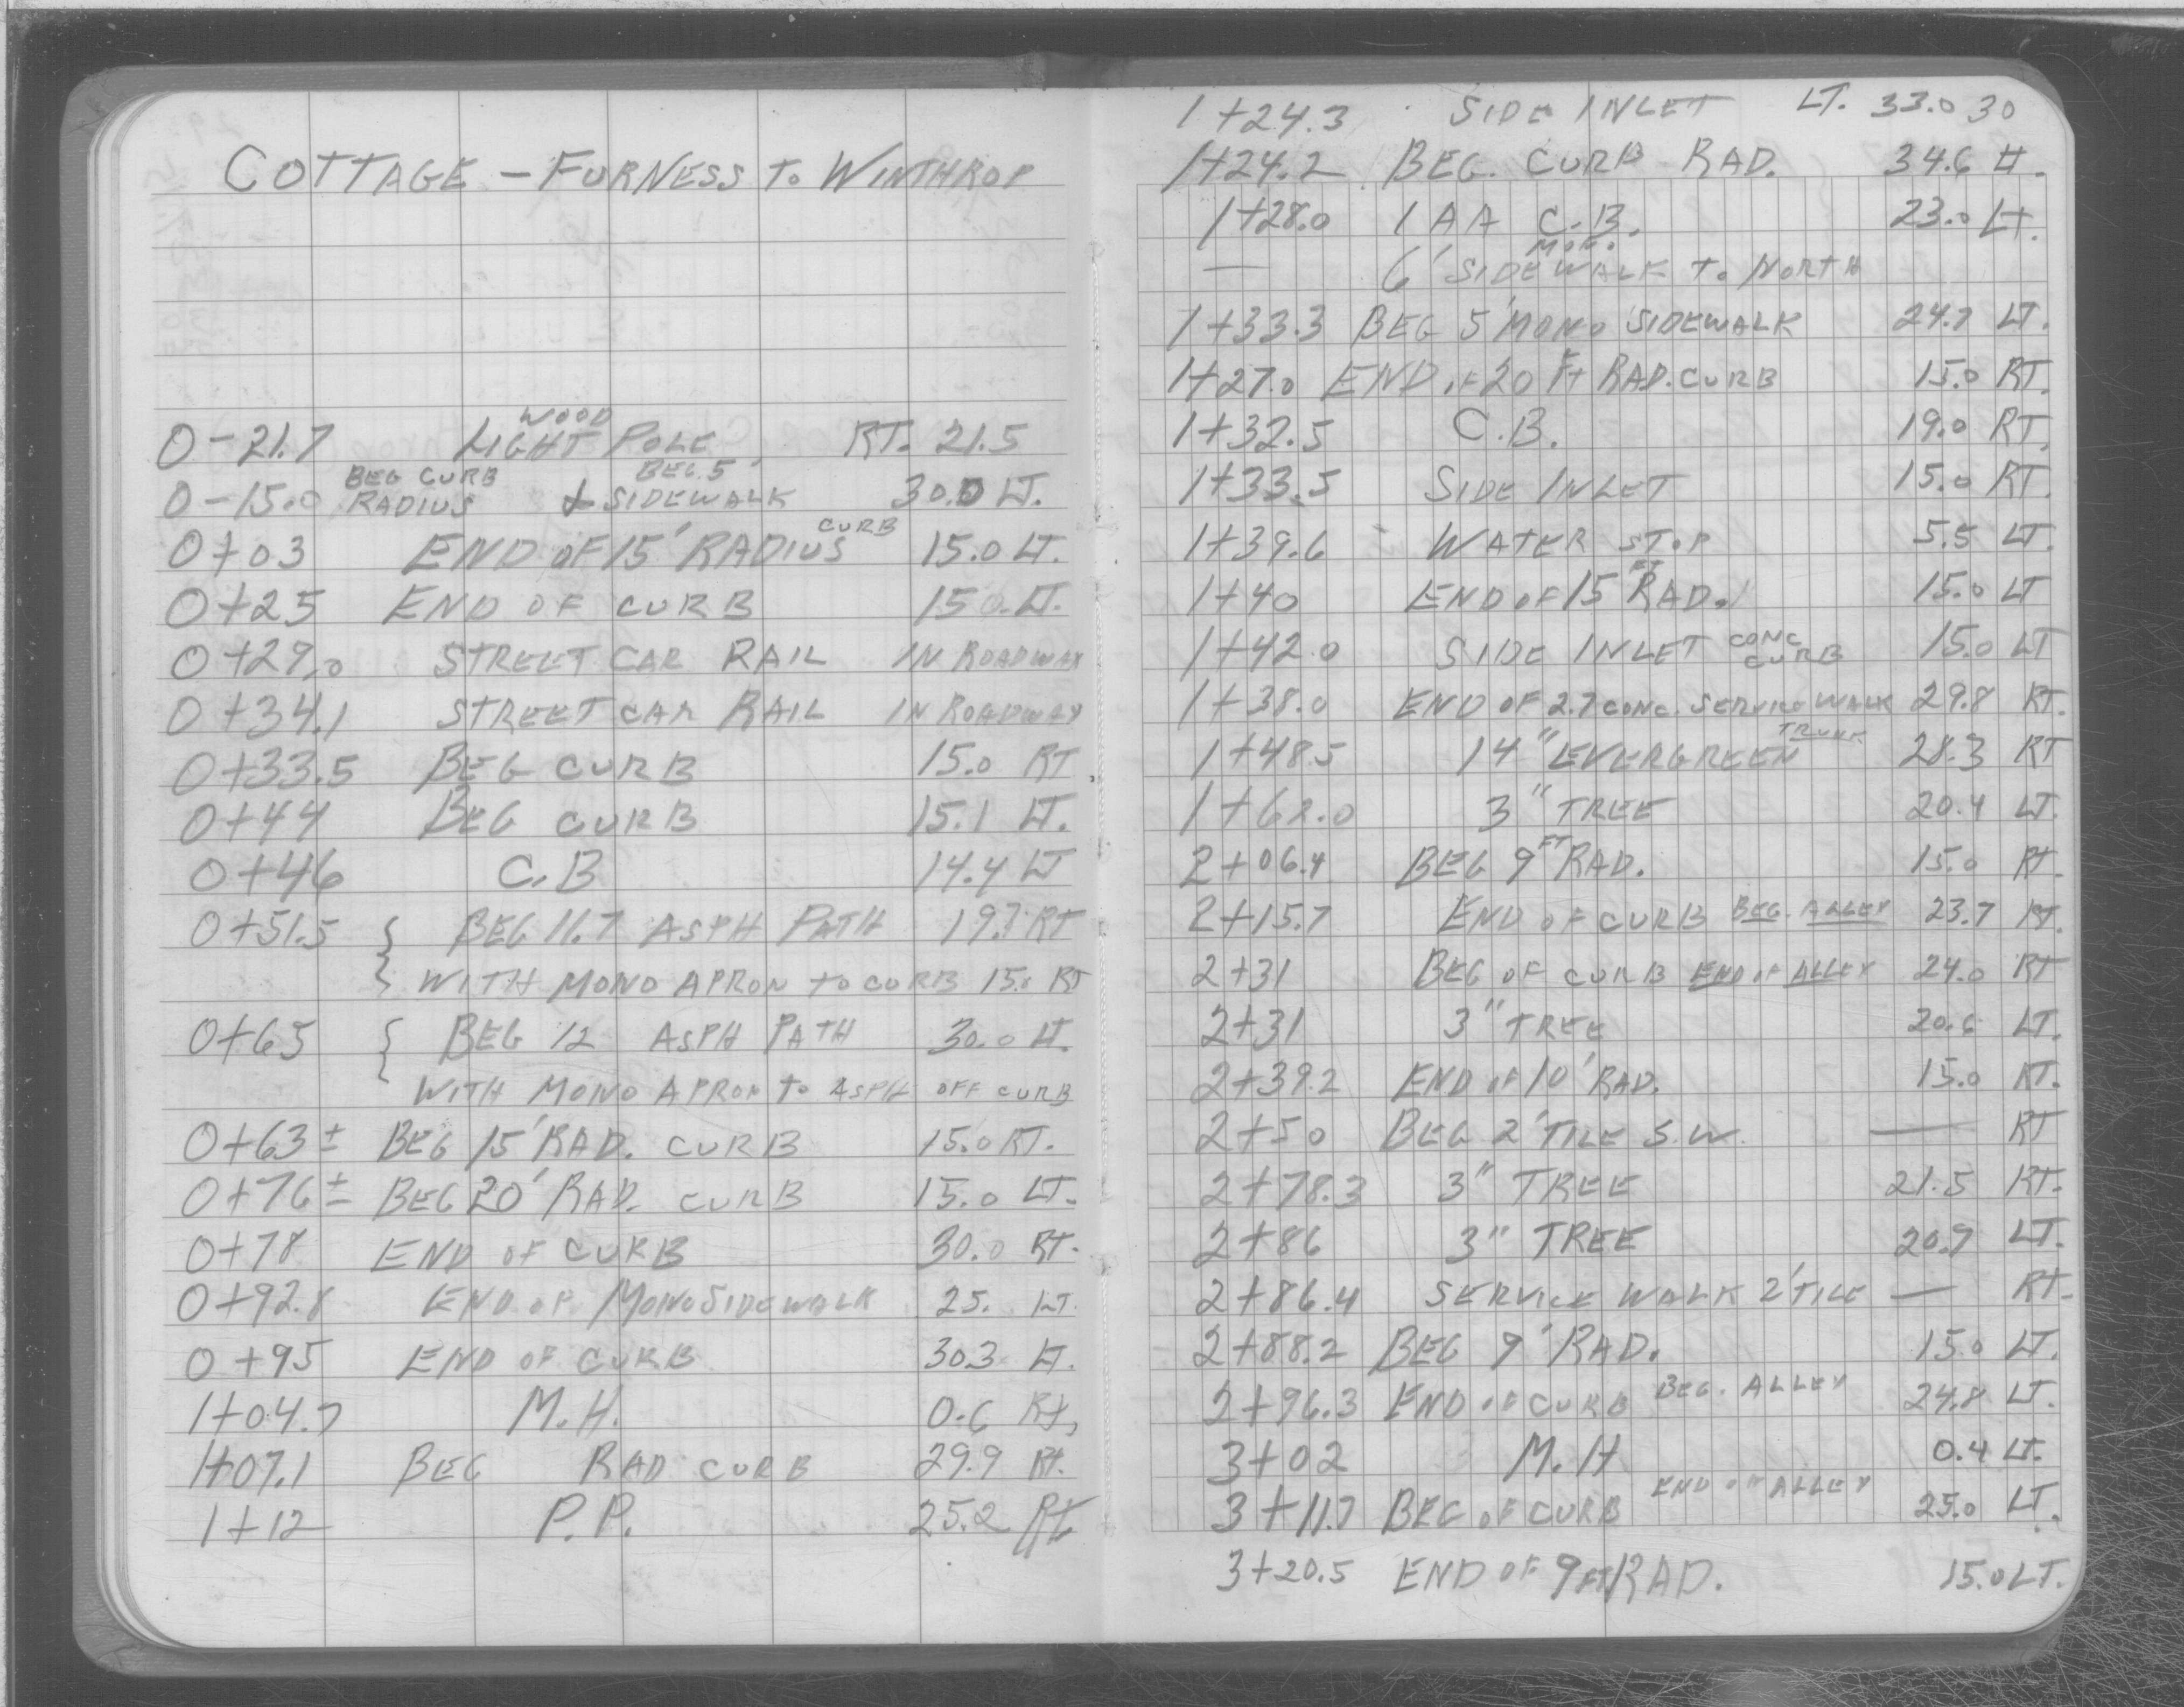 COTTAGE — FURNESS TO WINTHROP
0-21.7 WOOD LIGHT POLE, RT. 21.5
0-15.0 BEG CURB RADIUS & BEG. 5 SIDEWALK 30.0 LT.
0+03 END OF 15' RADIUS CURB 15.0 LT.
0+25 END OF CURB 15.0 LT.
0+29.0 STREET CAR RAIL IN ROADWAY
0+34.1 STREET CAR RAIL IN ROADWAY
0+33.5 BEG CURB 15.0 RT.
0+44 BEG CURB 15.1 LT.
0+46 C.B 14.4 LT
0+51.5 { BEG 11.7 ASPH PATH 19.7 RT
WITH MONO APRON TO CURB 15.0 RT
0+65 { BEG 12 ASPH PATH 30.0 LT.
WITH MONO APRON TO ASPH OFF CURB
0+63± BEG 15' RAD. CURB 15.0 RT.
0+76± BEG 20' RAD. CURB 15.0 LT.
0+78 END OF CURB 30.0 RT.
0+92.8 END OF MONO SIDEWALK 25. LT.
0+95 END OF CURB 30.3 LT.
1+04.7 M.H. 0.6 Rt.
1+07.1 BEG RAD CURB 29.9 Rt.
1+12 P.P. 25.2 Rt
1+24.3 SIDE INLET LT. 33.0 30
1+24.2 BEG. CURB RAD. 34.6 lt.
1+28.0 1 AA C.B. 23.0 Lt.
— 6' MONO. SIDEWALK TO NORTH
1+33.3 BEG 5' MONO SIDEWALK 24.7 LT.
1+27.0 END OF 20 Ft RAD. CURB 15.0 RT.
1+32.5 C.B. 19.0 RT.
1+33.5 SIDE INLET 15.0 RT.
1+39.6 WATER STOP 5.5 LT.
1+40 END OF 15 FT RAD. 15.0 LT
1+42.0 SIDE INLET CONC CURB 15.0 LT
1+38.0 END OF 2.7 CONC. SERVICE WALK 29.8 RT.
1+48.5 14" EVERGREEN TRUNK 28.3 RT
1+62.0 3" TREE 20.4 LT.
2+06.4 BEG 9 FT RAD. 15.0 Rt.
2+15.7 END OF CURB BEG. ALLEY 23.7 Rt.
2+31 BEG OF CURB END OF ALLEY 24.0 RT
2+31 3" TREE 20.6 LT.
2+39.2 END OF 10' RAD. 15.0 RT.
2+50 BEG 2' TILE S.W. — RT
2+78.3 3" TREE 21.5 RT.
2+86 3" TREE 20.9 LT.
2+86.4 SERVICE WALK 2' TILE — Rt.
2+88.2 BEG 9' RAD. 15.0 LT.
2+96.3 END OF CURB BEG. ALLEY 24.8 LT.
3+02 M.H 0.4 LT.
3+11.7 BEG OF CURB END OF ALLEY 25.0 LT.
3+20.5 END OF 9 FT RAD. 15.0 LT.